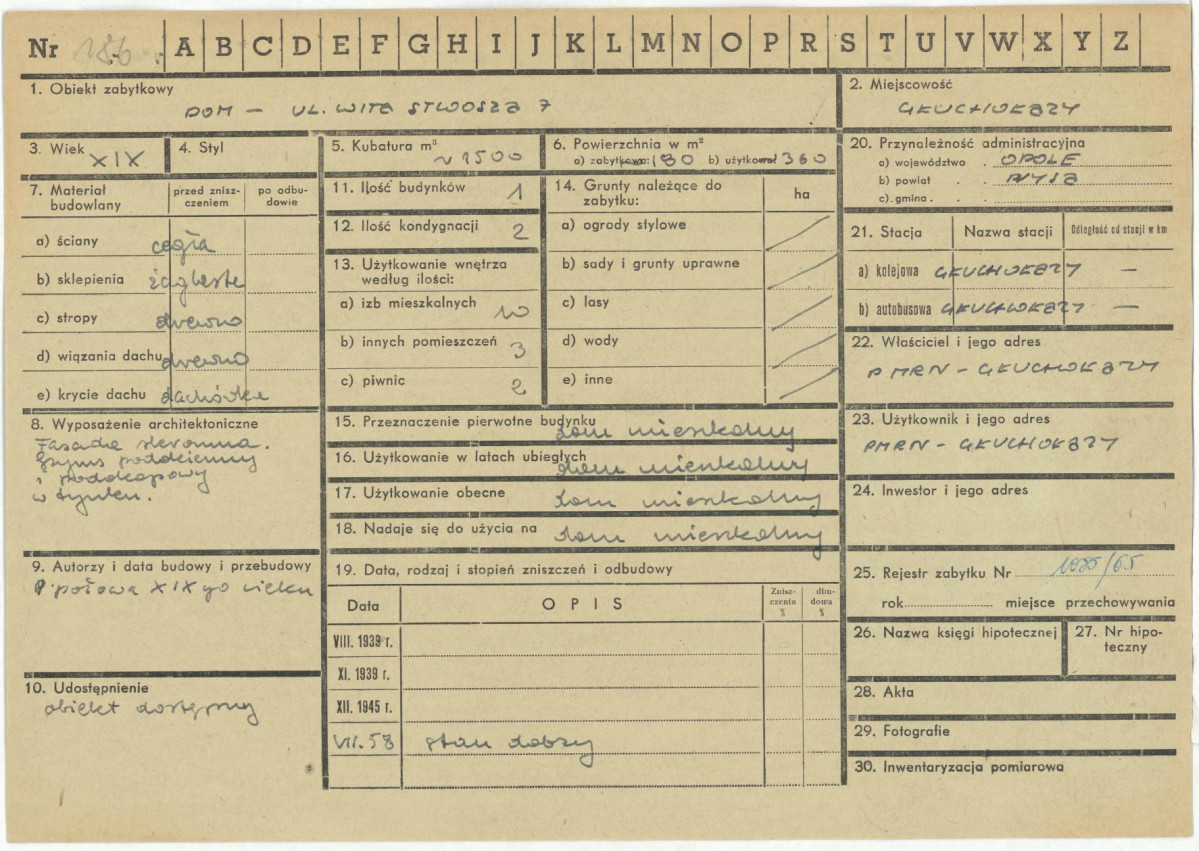 Nr 186. A B C D E F G H I J K L M N O P R S T U V W X Y Z
1. Obiekt zabytkowy
DOM – UL. WITA STWOSZA 7
2. Miejscowość
GŁUCHOŁAZY
3. Wiek XIX
4. Styl
5. Kubatura m³
~ 1500
6. Powierzchnia w m²
a) zabytkowa: 180 b) użytkowa: 360
20. Przynależność administracyjna
a) województwo . OPOLE
b) powiat . . NYSA
c) gmina . . .
7. Materiał budowlany
przed zniszczeniem
po odbudowie
a) ściany cegła
b) sklepienia żaglaste
c) stropy drewno
d) wiązania dachu drewno
e) krycie dachu dachówka
11. Ilość budynków 1
12. Ilość kondygnacji 2
13. Użytkowanie wnętrza według ilości:
a) izb mieszkalnych 10
b) innych pomieszczeń 3
c) piwnic 2
14. Grunty należące do zabytku:
ha
a) ogrody stylowe
b) sady i grunty uprawne
c) lasy
d) wody
e) inne
21. Stacja
Nazwa stacji
Odległość od stacji w km
a) kolejowa GŁUCHOŁAZY –
b) autobusowa GŁUCHOŁAZY –
22. Właściciel i jego adres
PMRN – GŁUCHOŁAZY
8. Wyposażenie architektoniczne
Fasada skromna.
Gzyms poddzienny
i podokapowy
w tynku.
15. Przeznaczenie pierwotne budynku dom mieszkalny
16. Użytkowanie w latach ubiegłych dom mieszkalny
17. Użytkowanie obecne dom mieszkalny
18. Nadaje się do użycia na dom mieszkalny
23. Użytkownik i jego adres
PMRN – GŁUCHOŁAZY
24. Inwestor i jego adres
9. Autorzy i data budowy i przebudowy
połowa XIX go wieku
19. Data, rodzaj i stopień zniszczeń i odbudowy
Data
OPIS
Zniszczenia %
dbudowa %
VIII. 1939 r.
XI. 1939 r.
XII. 1945 r.
VII. 58 stan dobry
10. Udostępnienie
obiekt dostępny
25. Rejestr zabytku Nr /65
rok miejsce przechowywania
26. Nazwa księgi hipotecznej
27. Nr hipoteczny
28. Akta
29. Fotografie
30. Inwentaryzacja pomiarowa